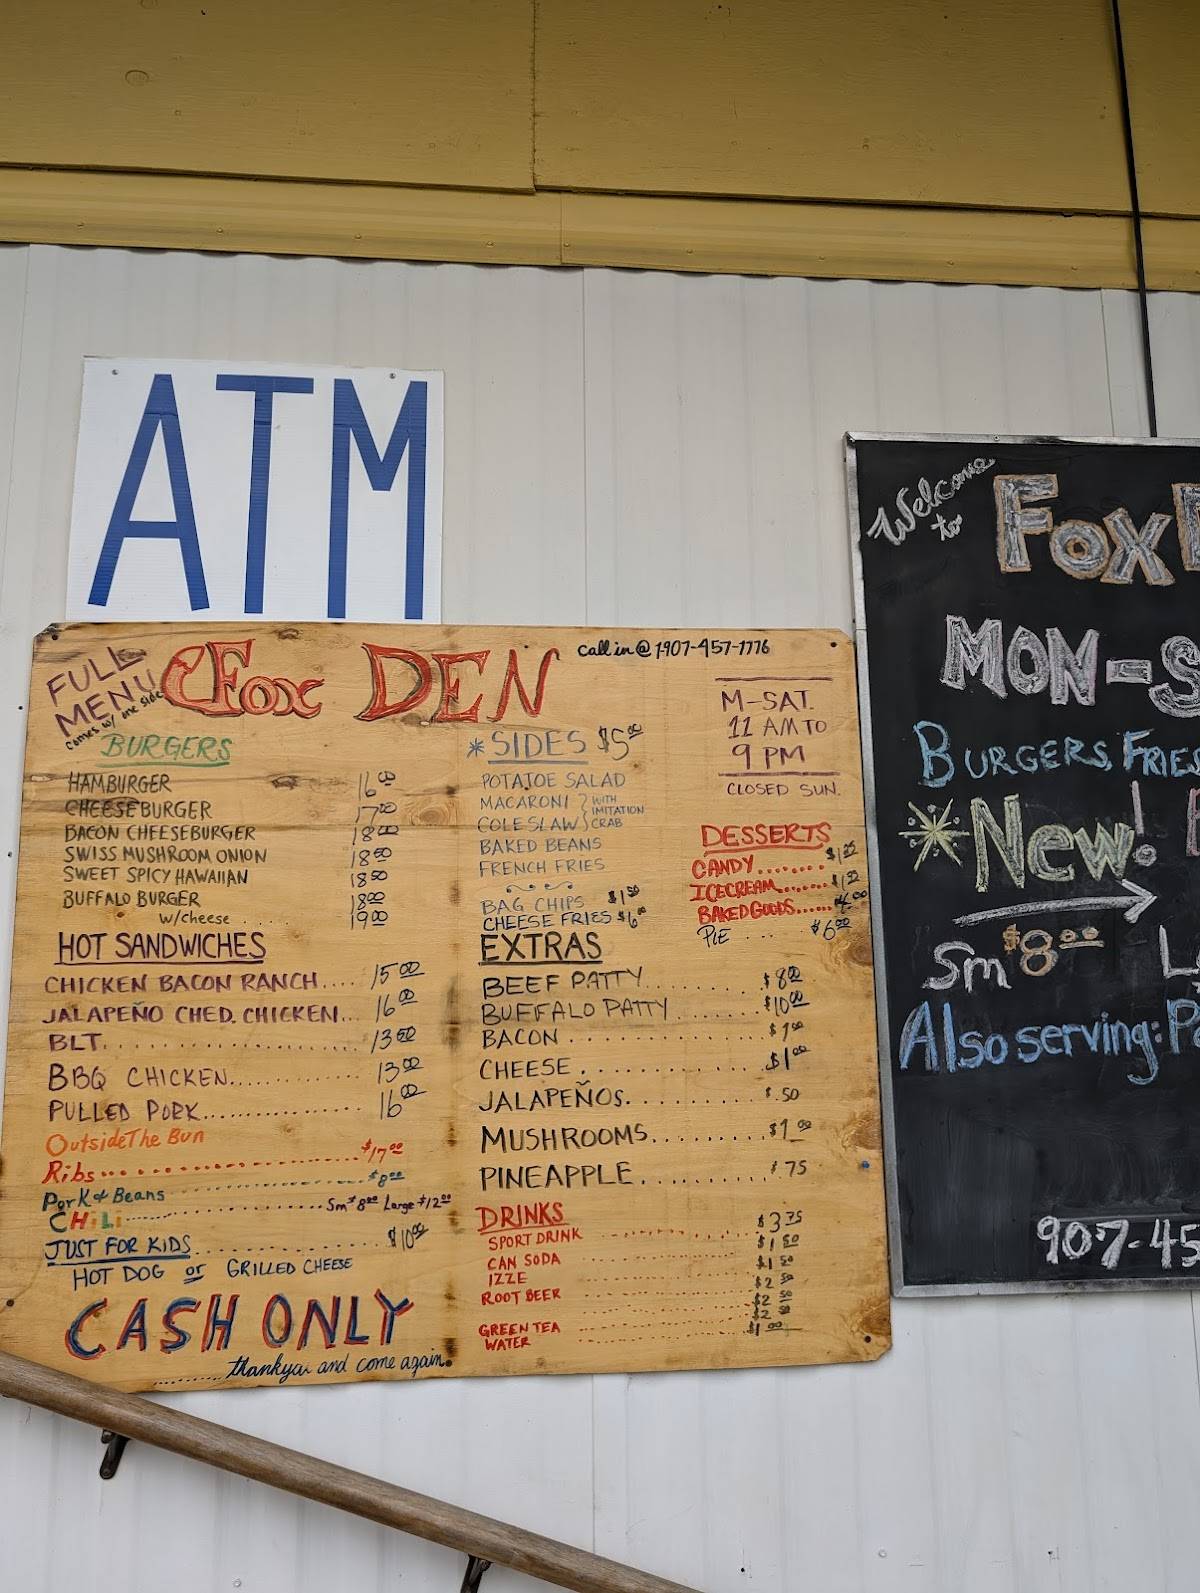 ATM
FULL MENU
comes w/ one side
Fox DEN
call in @ 1-907-457-1776
BURGERS
HAMBURGER 16 00
CHEESEBURGER 17 00
BACON CHEESEBURGER 18 00
SWISS MUSHROOM ONION 18 50
SWEET SPICY HAWAIIAN 18 50
BUFFALO BURGER 18 00
w/cheese .... 19 00
HOT SANDWICHES
CHICKEN BACON RANCH.... 15 00
JALAPEÑO CHED. CHICKEN... 16 00
BLT............ 13 50
BBQ CHICKEN............ 13 00
PULLED PORK............ 16 00
Outside The Bun
Ribs............ $17 00
Pork & Beans............ $8 00
CHiLi............ Sm $8 00 Large $12 00
JUST FOR KIDS............ $10 00
HOT DOG or GRILLED CHEESE
CASH ONLY
........thankyou and come again.
* SIDES $5 00
POTATOE SALAD
MACARONI
COLESLAW
} WITH IMITATION CRAB
BAKED BEANS
FRENCH FRIES
BAG CHIPS $1 50
CHEESE FRIES $6
EXTRAS
BEEF PATTY.......... $8 00
BUFFALO PATTY.......... $10 00
BACON.......... $1 00
CHEESE.......... $1 00
JALAPEÑOS.......... $.50
MUSHROOMS.......... $1 00
PINEAPPLE.......... .75
DRINKS
$3 75
SPORT DRINK $1 50
CAN SODA $1 50
IZZE $2 50
ROOT BEER $2 50
$2 50
GREEN TEA $1 00
WATER
M-SAT.
11 AM TO
9 PM
CLOSED SUN.
DESSERTS
CANDY........ $1 25
ICECREAM.......
BAKED GOODS......
PIE .... $6 00
Welcome
to
Fox
MON-S
BURGERS, FRIES
*New!
Sm $8 00
Also serving:
907-45